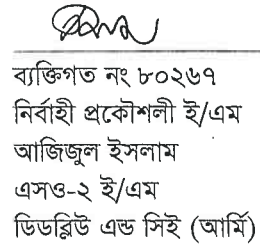 ব্যক্তিগত নং ৮০২৬৭
নির্বাহী প্রকৌশলী ই/এম
আজিজুল ইসলাম
এসও-২ ই/এম
ডিডব্লিউ এন্ড সিই (আর্মি)